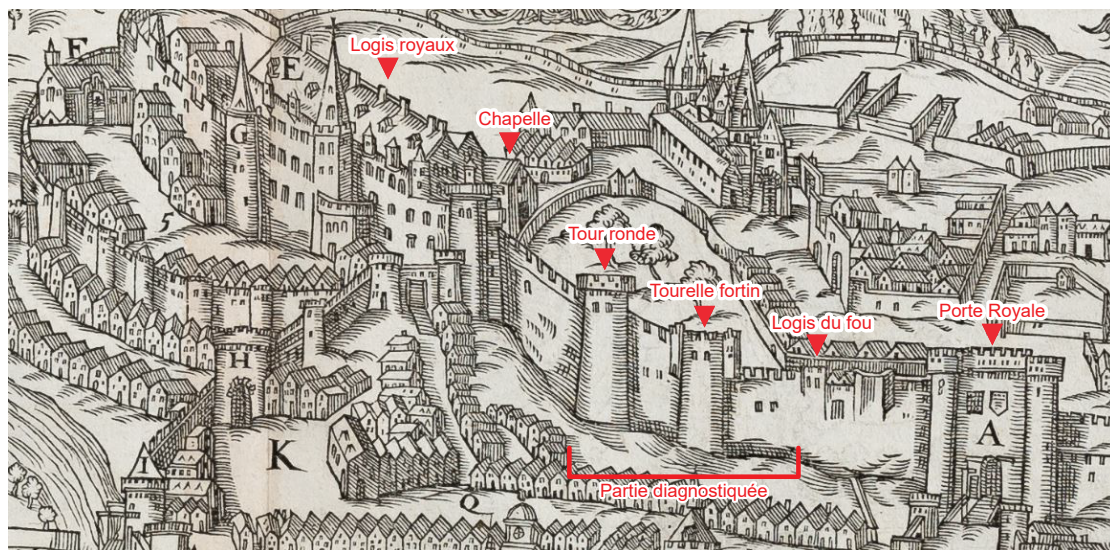 F
Logis royaux
E
Chapelle
G
D
5
Tour ronde
Tourelle fortin
Logis du fou
Porte Royale
H
A
K
I
Partie diagnostiquée
Q